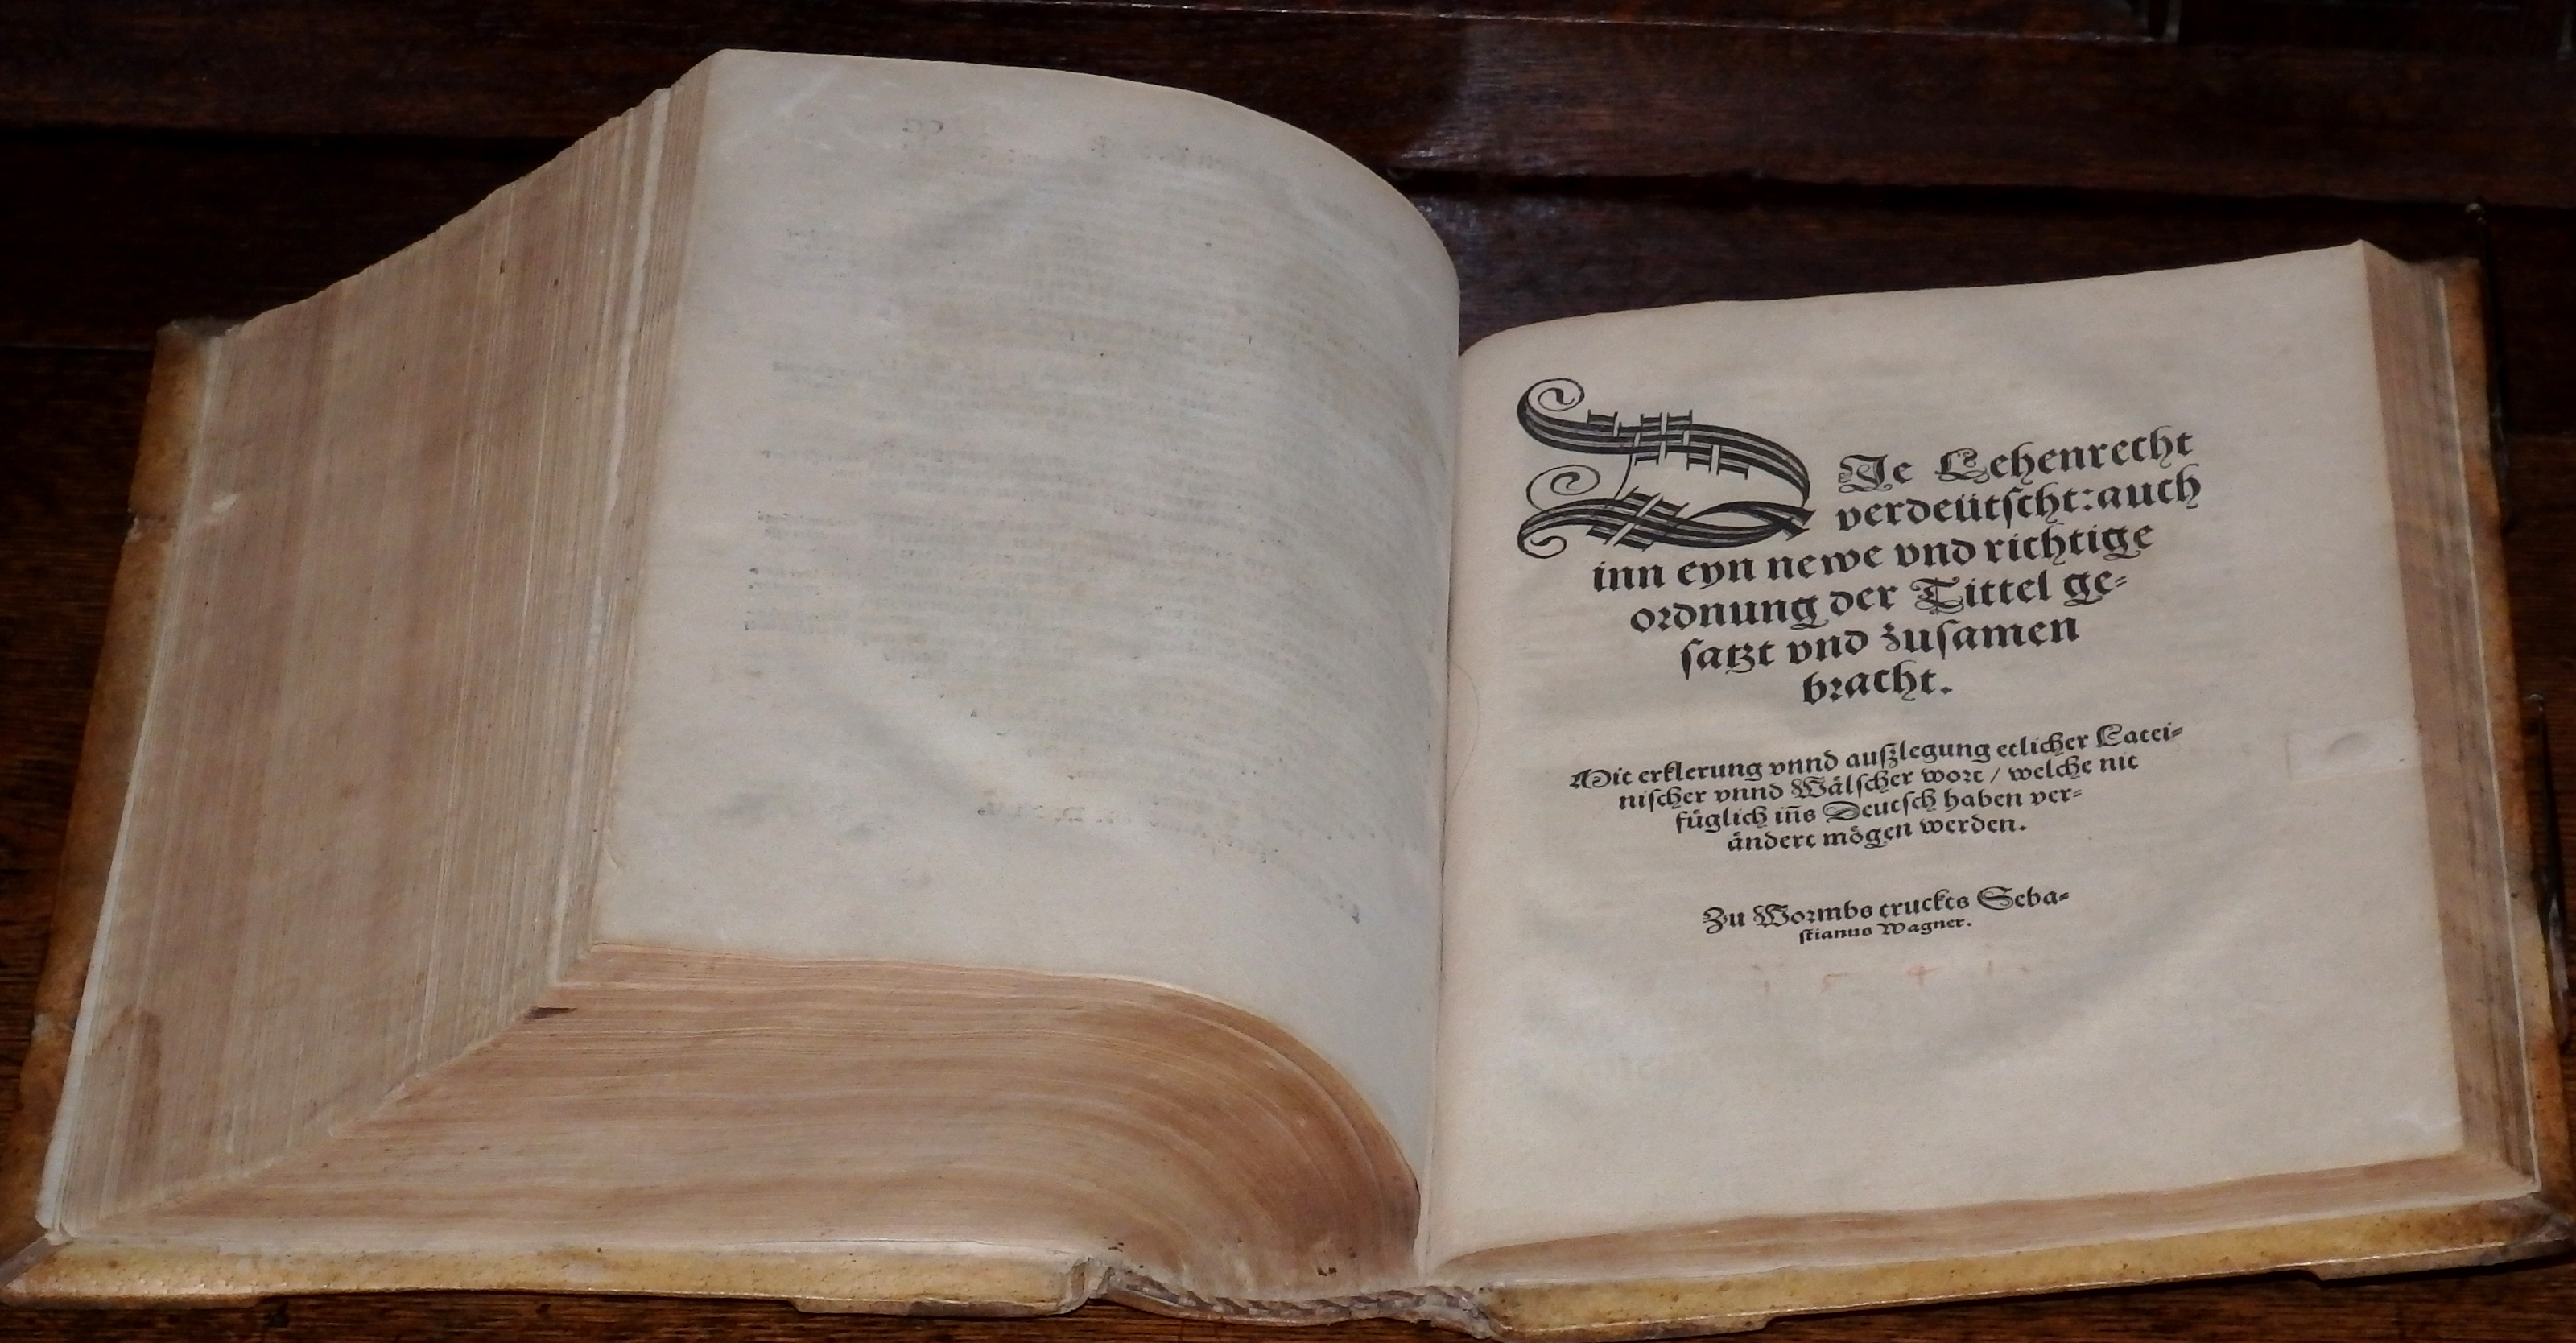 DIe Lehenrecht
verdeütſcht: auch
inn eyn newe vnd richtige
ordnung der Tittel ge⸗
ſatzt vnd zuſamen
bracht.
Mit erklerung vnnd außlegung etlicher Latei⸗
niſcher vnnd Wälſcher wort / welche nit
füglich iñs Deutſch haben ver⸗
ändert mögen werden.
Zu Wormbs truckts Seba⸗
ſtianus Wagner.